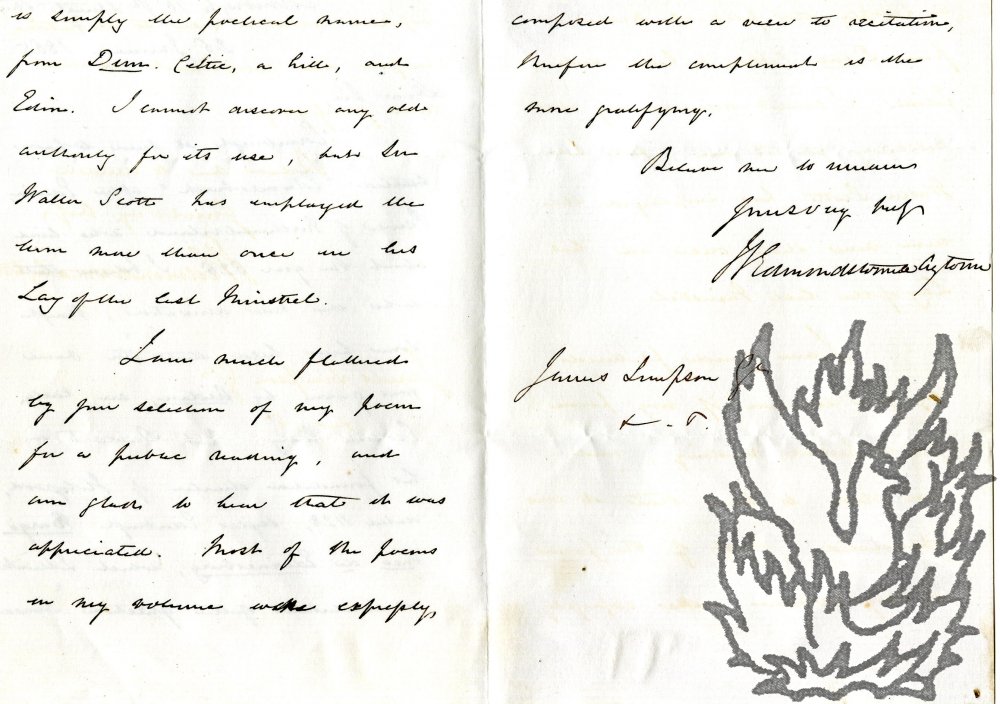 is simply the poetical name,
from Dun. Celtic, a hill, and
Edin. I cannot discover any old
authority for its use, but Sir
Walter Scott has employed the
term more than once in his
Lay of the last Minstrel.
I am much flattered
by your selection of my poem
for a public reading, and
am glad to hear that it was
appreciated. Most of the poems
in my volume were expressly,
composed with a view to recitation,
therefore the compliment is the
more gratifying.
Believe me to remain
Yours very truly
W Edmondstoune Aytoun
James Simpson Esq